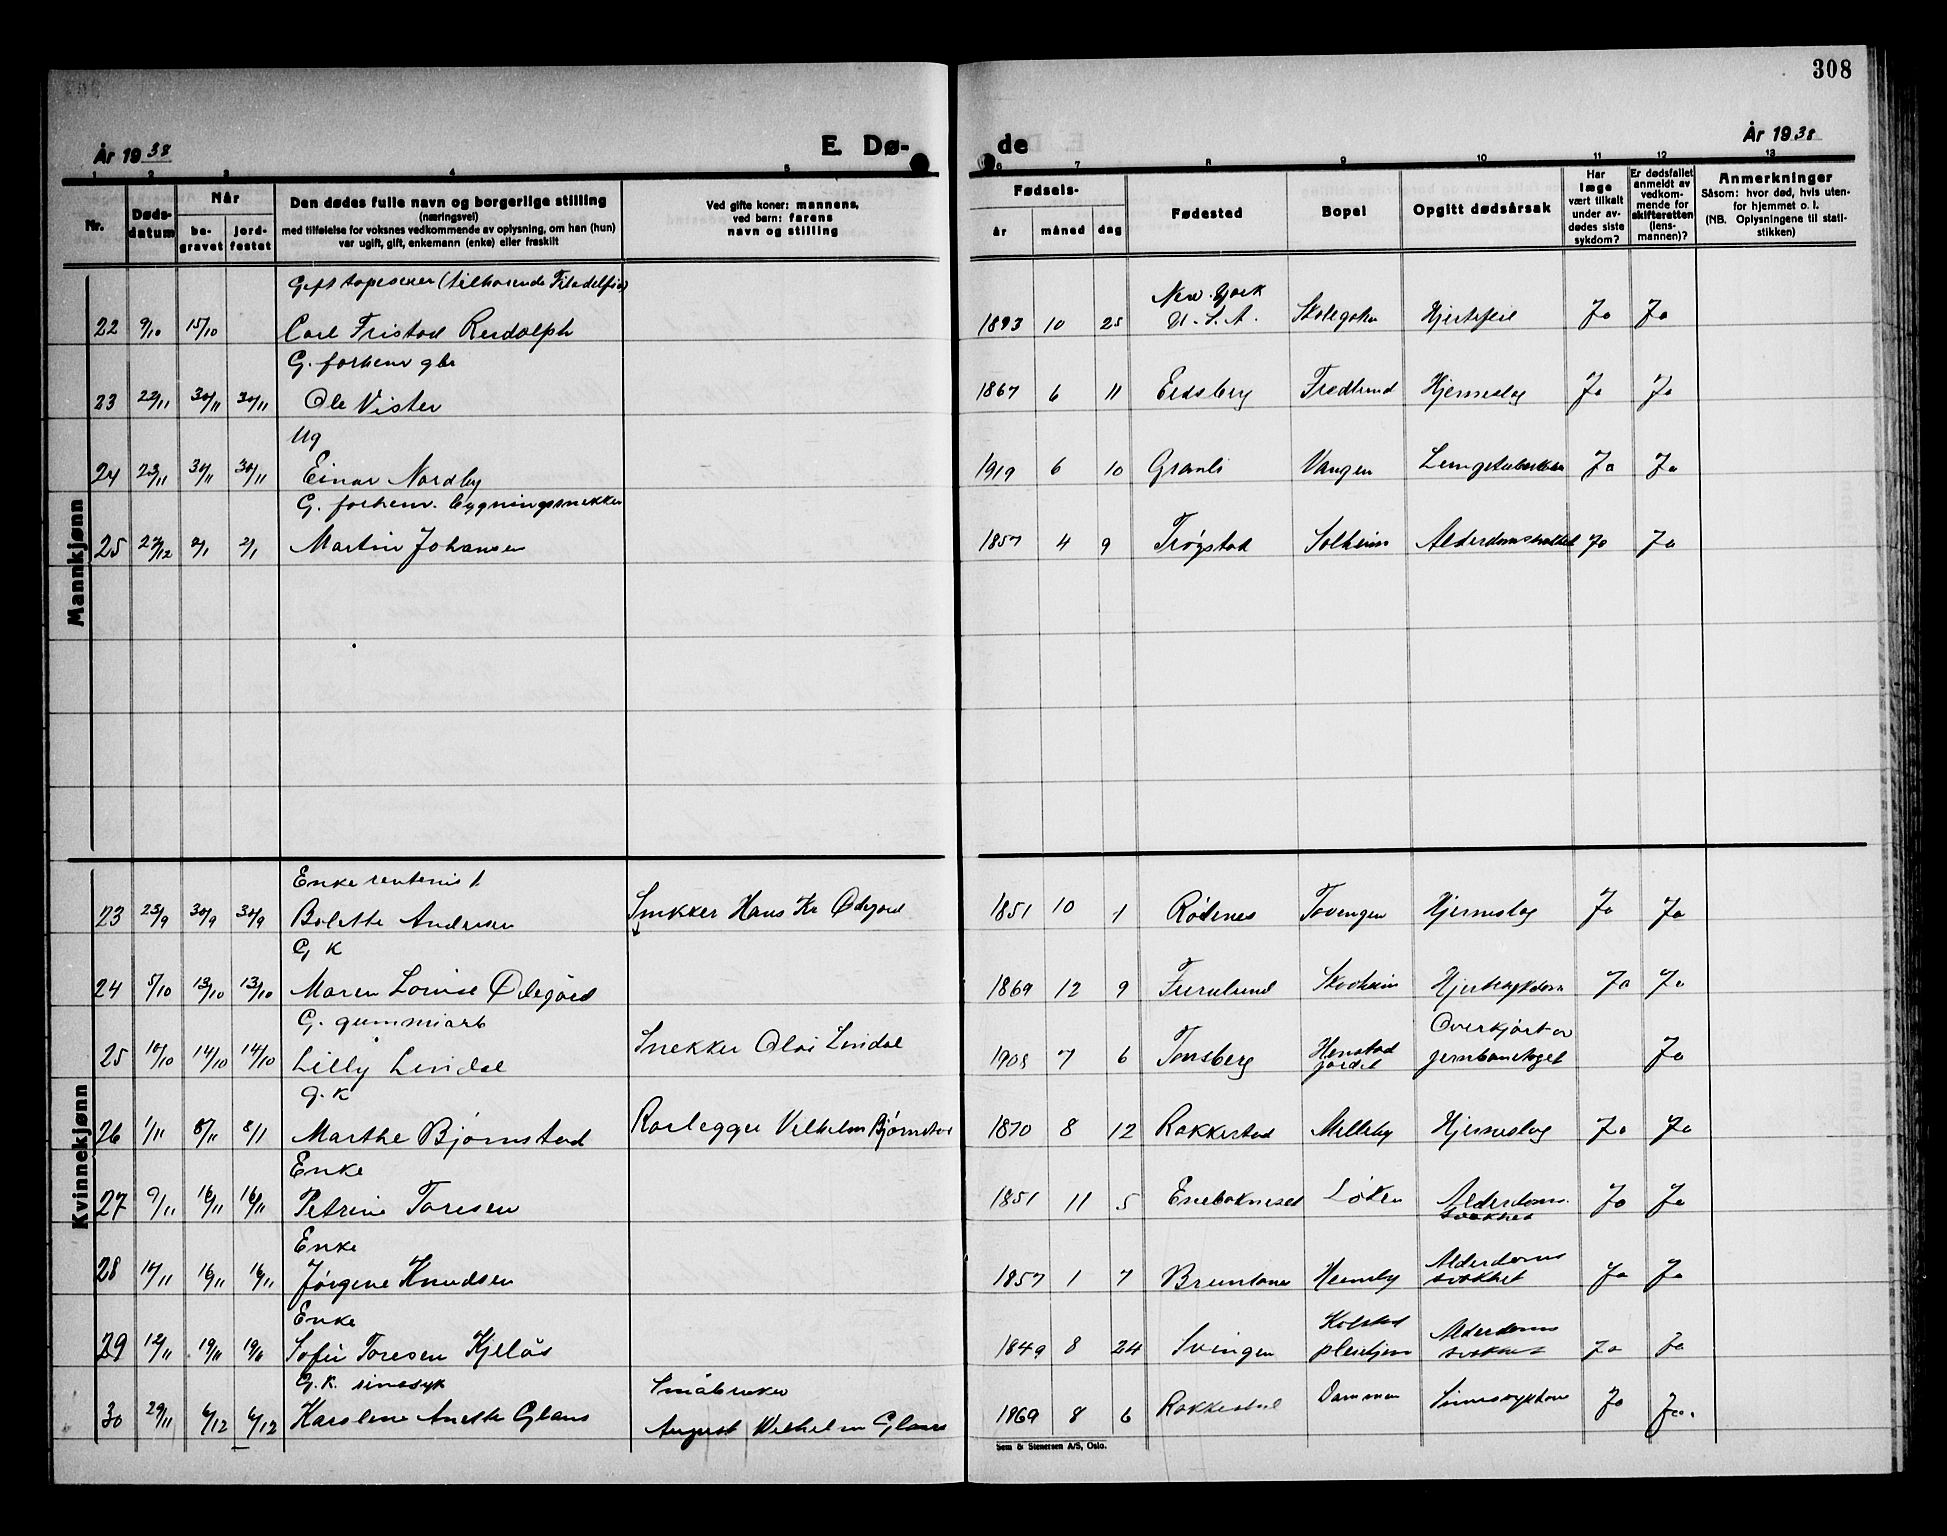 308
År 1938
E. Dø-
de
År 1938
1 2 3 4 5 6 7 8 9 10 11 12 13
Nr.
Døds-
datum
Når
be-
gravet
jord-
festet
Den dødes fulle navn og borgerlige stilling
(næringsvei)
med tilføielse for voksnes vedkommende av oplysning, om han (hun)
var ugift, gift, enkemann (enke) eller fraskilt
Ved gifte koner: mannens,
ved barn: farens
navn og stilling
Fødsels-
år måned dag
Fødested
Bopel
Opgitt dødsårsak
Har
læge
vært tilkalt
under av-
dødes siste
sykdom?
Er dødsfallet
anmeldt av
vedkom-
mende for
skifteretten
(lens-
mannen)?
Anmerkninger
Såsom: hvor død, hvis uten-
for hjemmet o. l.
(NB. Oplysningene til stati-
stikken)
Mannkjønn
Gift tapeserer (tilhørende Filadelfia)
22 9/10 15/10 Carl Tristad Rudolph 1893 10 25 New York U.S.A. Hjertefeil Ja Ja
G. forhenv gbr
23 22/11 30/11 30/11 Ole Vister 1867 6 11 Eidsberg Fredlund Hjerneslag Ja Ja
Ug
24 23/11 30/11 30/11 Einar Nordby 1919 6 10 Granli Vangen Ja Ja
G. forhenv. bygningssnekker
25 27/12 2/1 2/1 Martin Johansen 1857 4 9 Trøgstad Solheim Ja Ja
Kvinnekjønn
Enke rentenist
23 23/9 30/9 30/9 Bolette Andresen Snekker Hans Kr Ødegård 1851 10 1 Rødenes Tovengen Hjerneslag Ja Ja
G K
24 5/10 13/10 13/10 Maren Lovise Ødegård 1869 12 9 Furulund Skodheim Hjertesykdom Ja Ja
G. gummiarb
25 10/10 14/10 14/10 Lilly Lindal Snekker Olai Lindal 1908 7 6 Tønsberg Henstad jordet Overkjørt av jernbanetoget Ja
G. K
26 1/11 8/11 8/11 Marthe Bjørnstad Rørlegger Vilhelm Bjørnstad 1870 8 12 Rakkestad Melleby Hjerneslag Ja Ja
Enke
27 9/11 16/11 16/11 Petrine Toresen 1851 11 5 Enebakneset Løken Alderdoms svakhet Ja Ja
Enke
28 10/11 16/11 16/11 Jørgene Knudsen 1857 1 7 Heensby Alderdoms svakhet Ja Ja
Enke
29 12/11 19/11 19/11 Sofie Toresen Kjelås 1849 8 24 Svingen Kolstad pleiehjem Alderdoms svakhet Ja Ja
G. K. sinnsyk
30 29/11 6/12 6/12 Karoline Anette Glans Småbruker August Wilhelm Glans 1869 8 6 Rakkestad Dammen Sinnssykdom Ja Ja.
Sem & Stenersen A/S, Oslo.